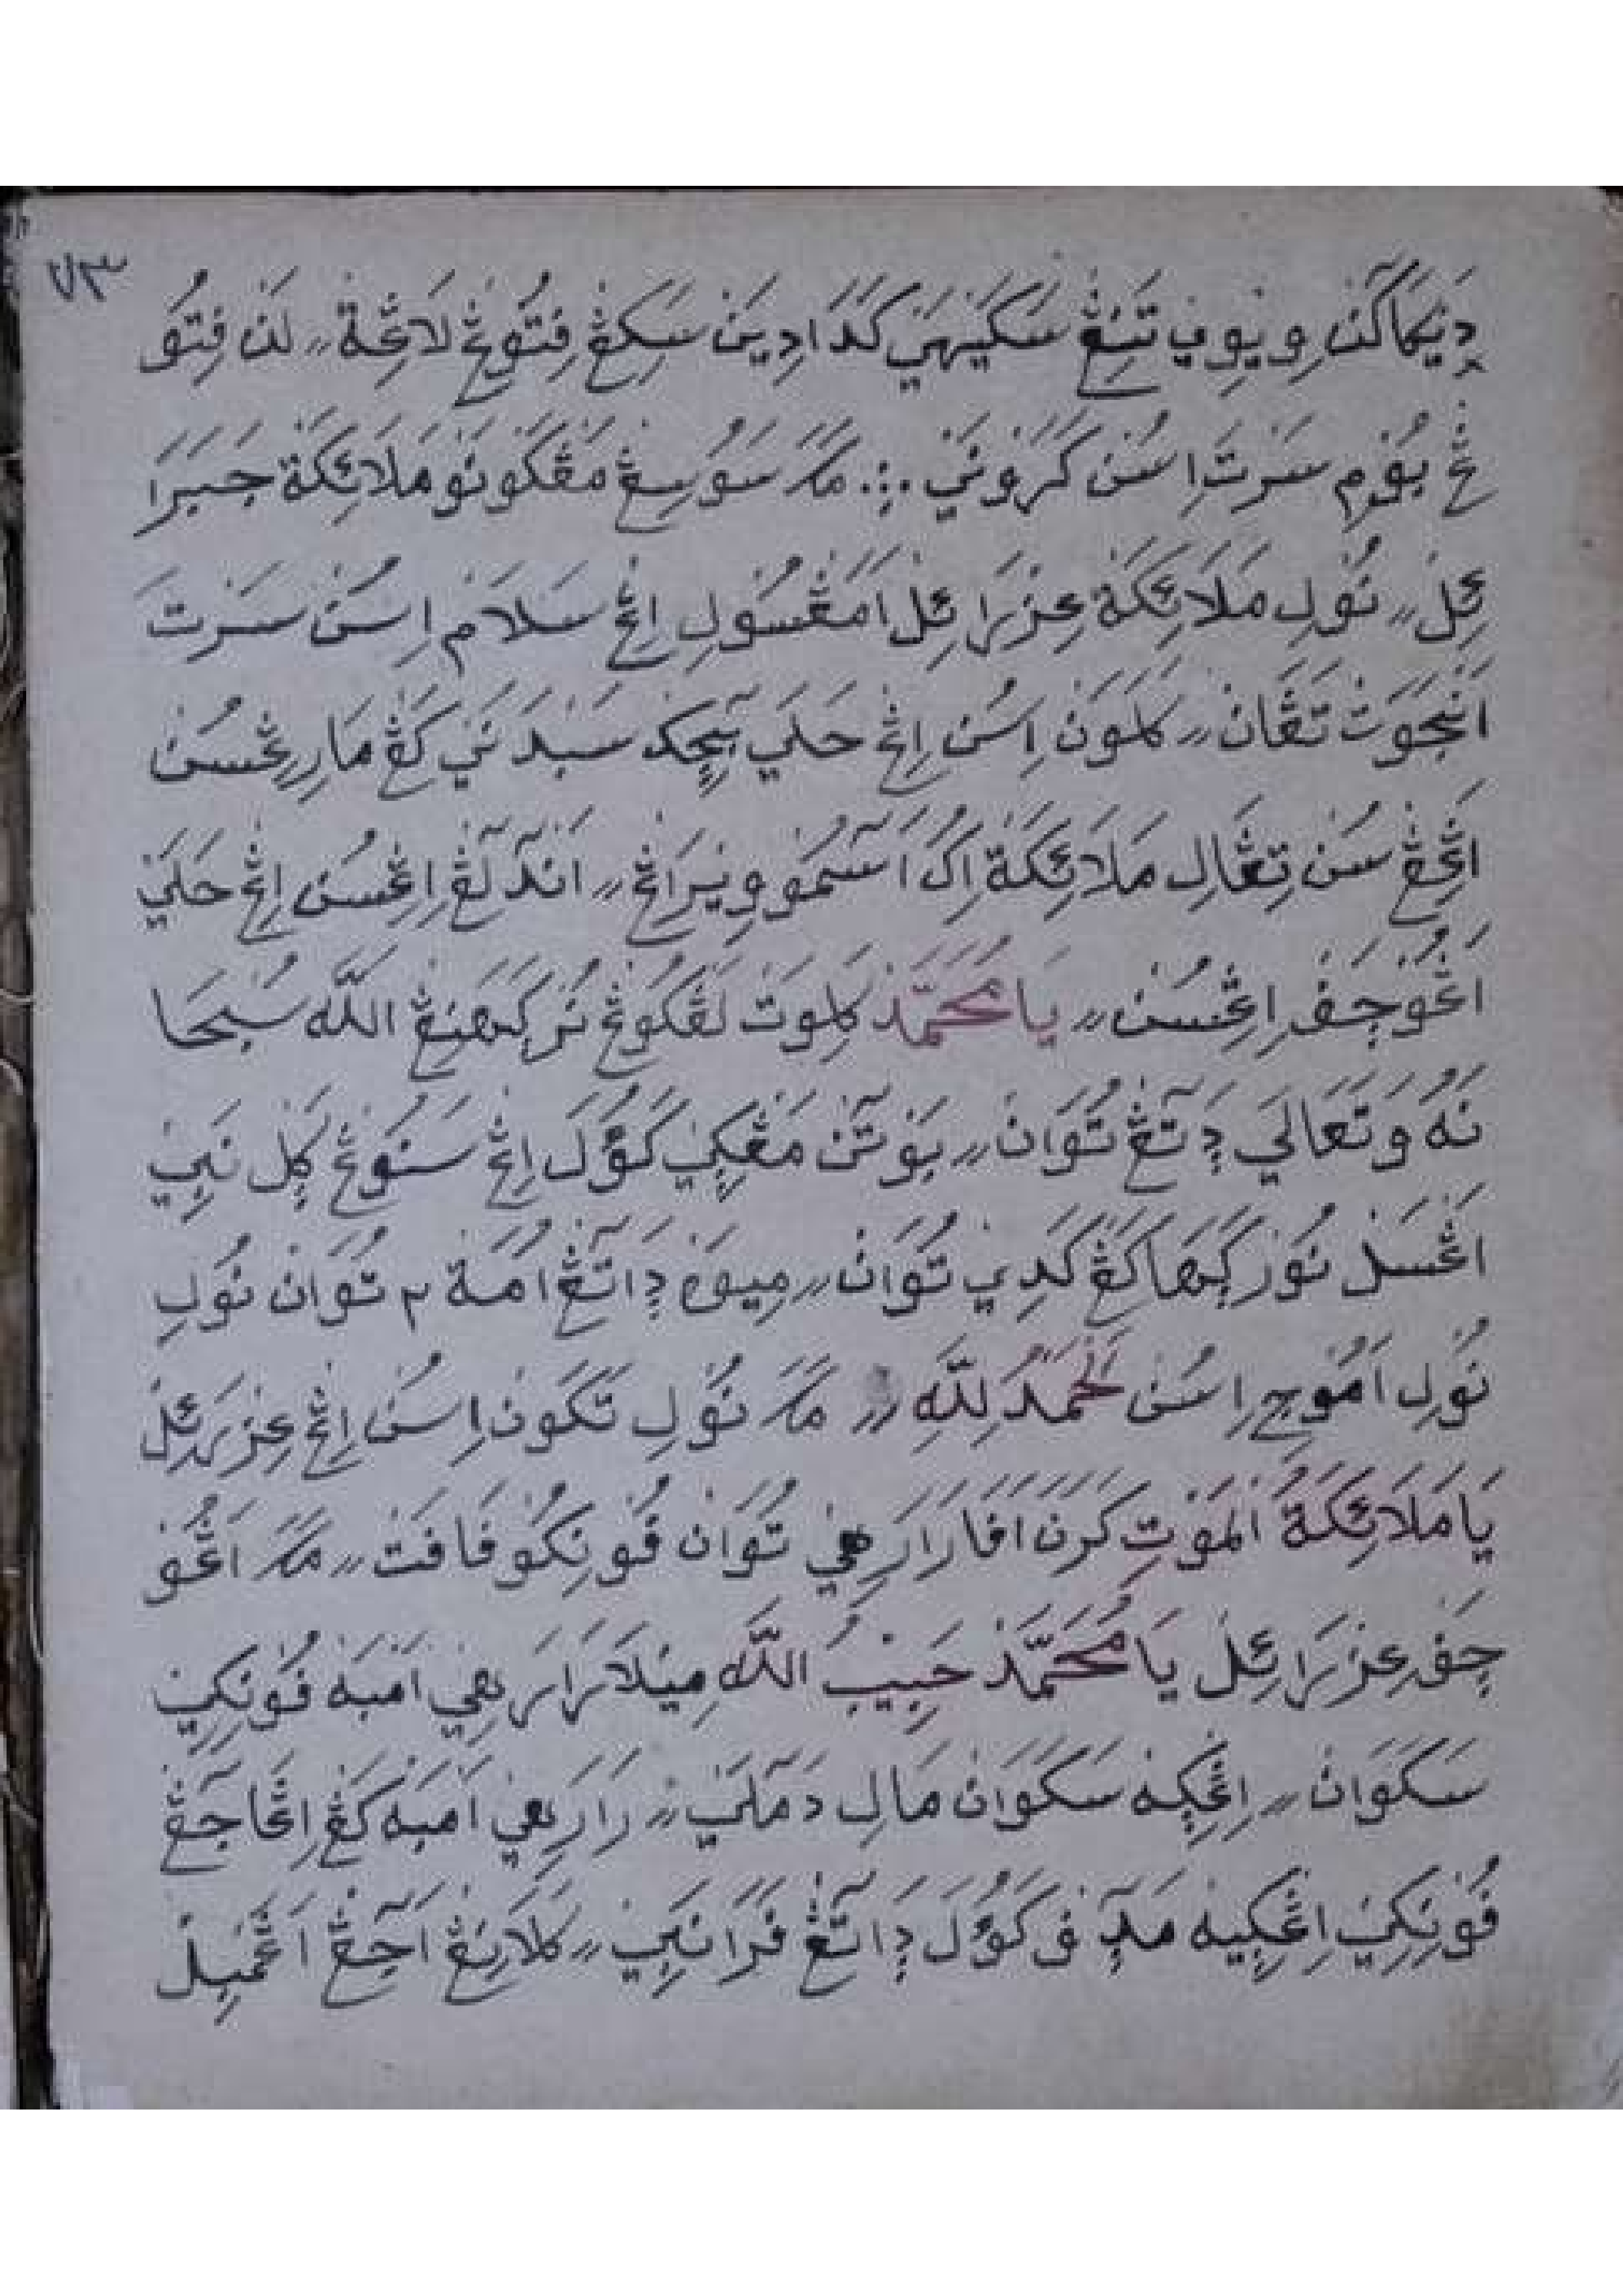 ٧٣
دِنيَكَاكٓن وِيوِيتَنِڠْ سَكَيْهَيْ كَدَادِيَنْ سَكِڠْ فِتُوڠْ لَاڠِةْ〃 لَنْ فِتُو
ڠْ بُوْمِ سَرْتَ اِسُنْ كَرَوْنَيْ . مَكَ سَوُسِڠْ مَڠْكَوْنَوْ مَلَائِكَةْ جَبَرَا
ئِلْ〃 نُوْلِ مَلَائِكَةْ عِزْرَائِلْ اَمَڠْسُوْلِ اِڠْ سَلَامْ اِسُنْ سَرْتَ
اَنْجَوَتْ تَڠَانْ〃 كَلَوَنْ اِسُنْ اِڠْ حَلَيْ بٓچِكْ سَبْدَنَيْ كَڠْ مَارِڠْسُنْ
اَڠِڠْ سُنْ تِڠَالِ مَلَائِكَةْ اِكُ اَسٓمُوْ وِيْرَاڠْ〃 اَنْدٓلٓڠْ اِڠْسُنْ اِڠْ حَلَيْ
اَڠُوْچَفْ اِڠْسُنْ〃 يَا مُحَمَّدْ كَلَوَتْ لَڠْكُوڠْ نُرْكَهَنِڠْ اللّٰه سُبْحَا
نَهُ وَتَعَالَي دَتٓڠْ تُوَانْ〃 بَوْتٓنْ مَڠْكِيْ كَوُلَ اِڠْ سَنُوڠْ كِلْ نَبِيْ
اَڠْسَلْ نُوْرْكَهَا كَڠْ كَدِيْ تُوَانْ〃 مِيْوَهْ دَاتٓڠْ اُمَةْ ٢ تُوَانْ نُوْلِ
نُوْلِ اَمُوْجِ اِسُنْ اَلْحَمْدُ لِلّٰهِ〃 مَكَ نُوْلِ تَكَوْنْ اِسُنْ اِڠْ عِزْرَئِلْ
يَا مَلَائِكَةُ الْمَوْتِ كَرَنَ اَفَا رَارَهِيْ تُوَانْ فُوْنِكُوْ فَافَتْ〃 مَكَ اَڠُوْ
چَفْ عِزْرَائِلْ يَا مُحَمَّدْ حَبِيْبُ اللّٰه مِيْلَا رَارَهِيْ اَمْبَهْ فُوْنِكِيْ
سَكَوَانْ〃 اِڠْكِهْ سَكَوَانْ مَالِ دَمٓلَيْ〃 رَارَهِيْ اَمْبَهْ كَڠْ اِڠَاجٓڠْ
فُوْنِكِيْ اِڠْكِيهْ مَدٓفْ كَوُلَ دَاتٓڠْ فَرَا نَبِيْ〃 كَلَانِڠْ اَجٓڠْ اَڠَمْبِلْ